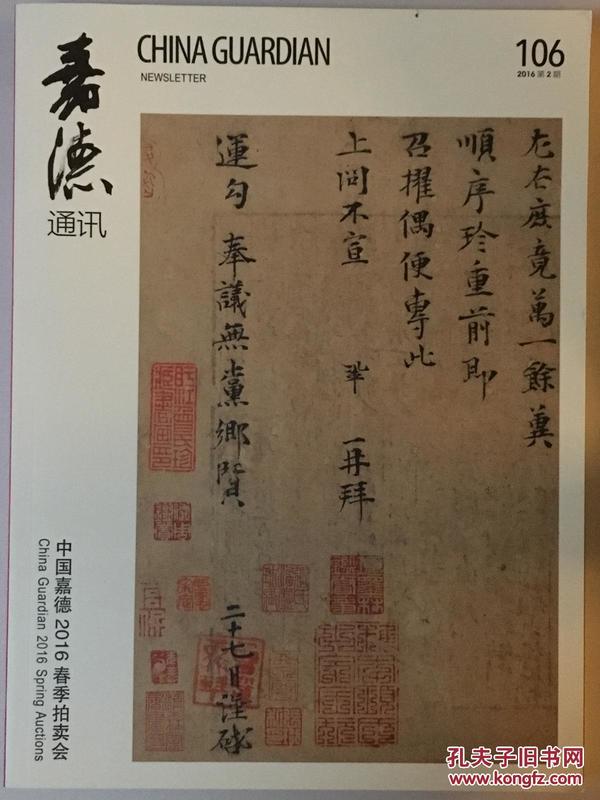 嘉德
通讯
CHINA GUARDIAN
NEWSLETTER
106
2016 第 2 期
左右庶竟萬一餘冀
順序珍重前即
召擢偶便專此
上問不宣 鞏 再拜
運勾 奉議無黨鄉賢
二十七日謹啟
中国嘉德 2016 春季拍卖会
China Guardian 2016 Spring Auctions
孔夫子旧书网
www.kongfz.com